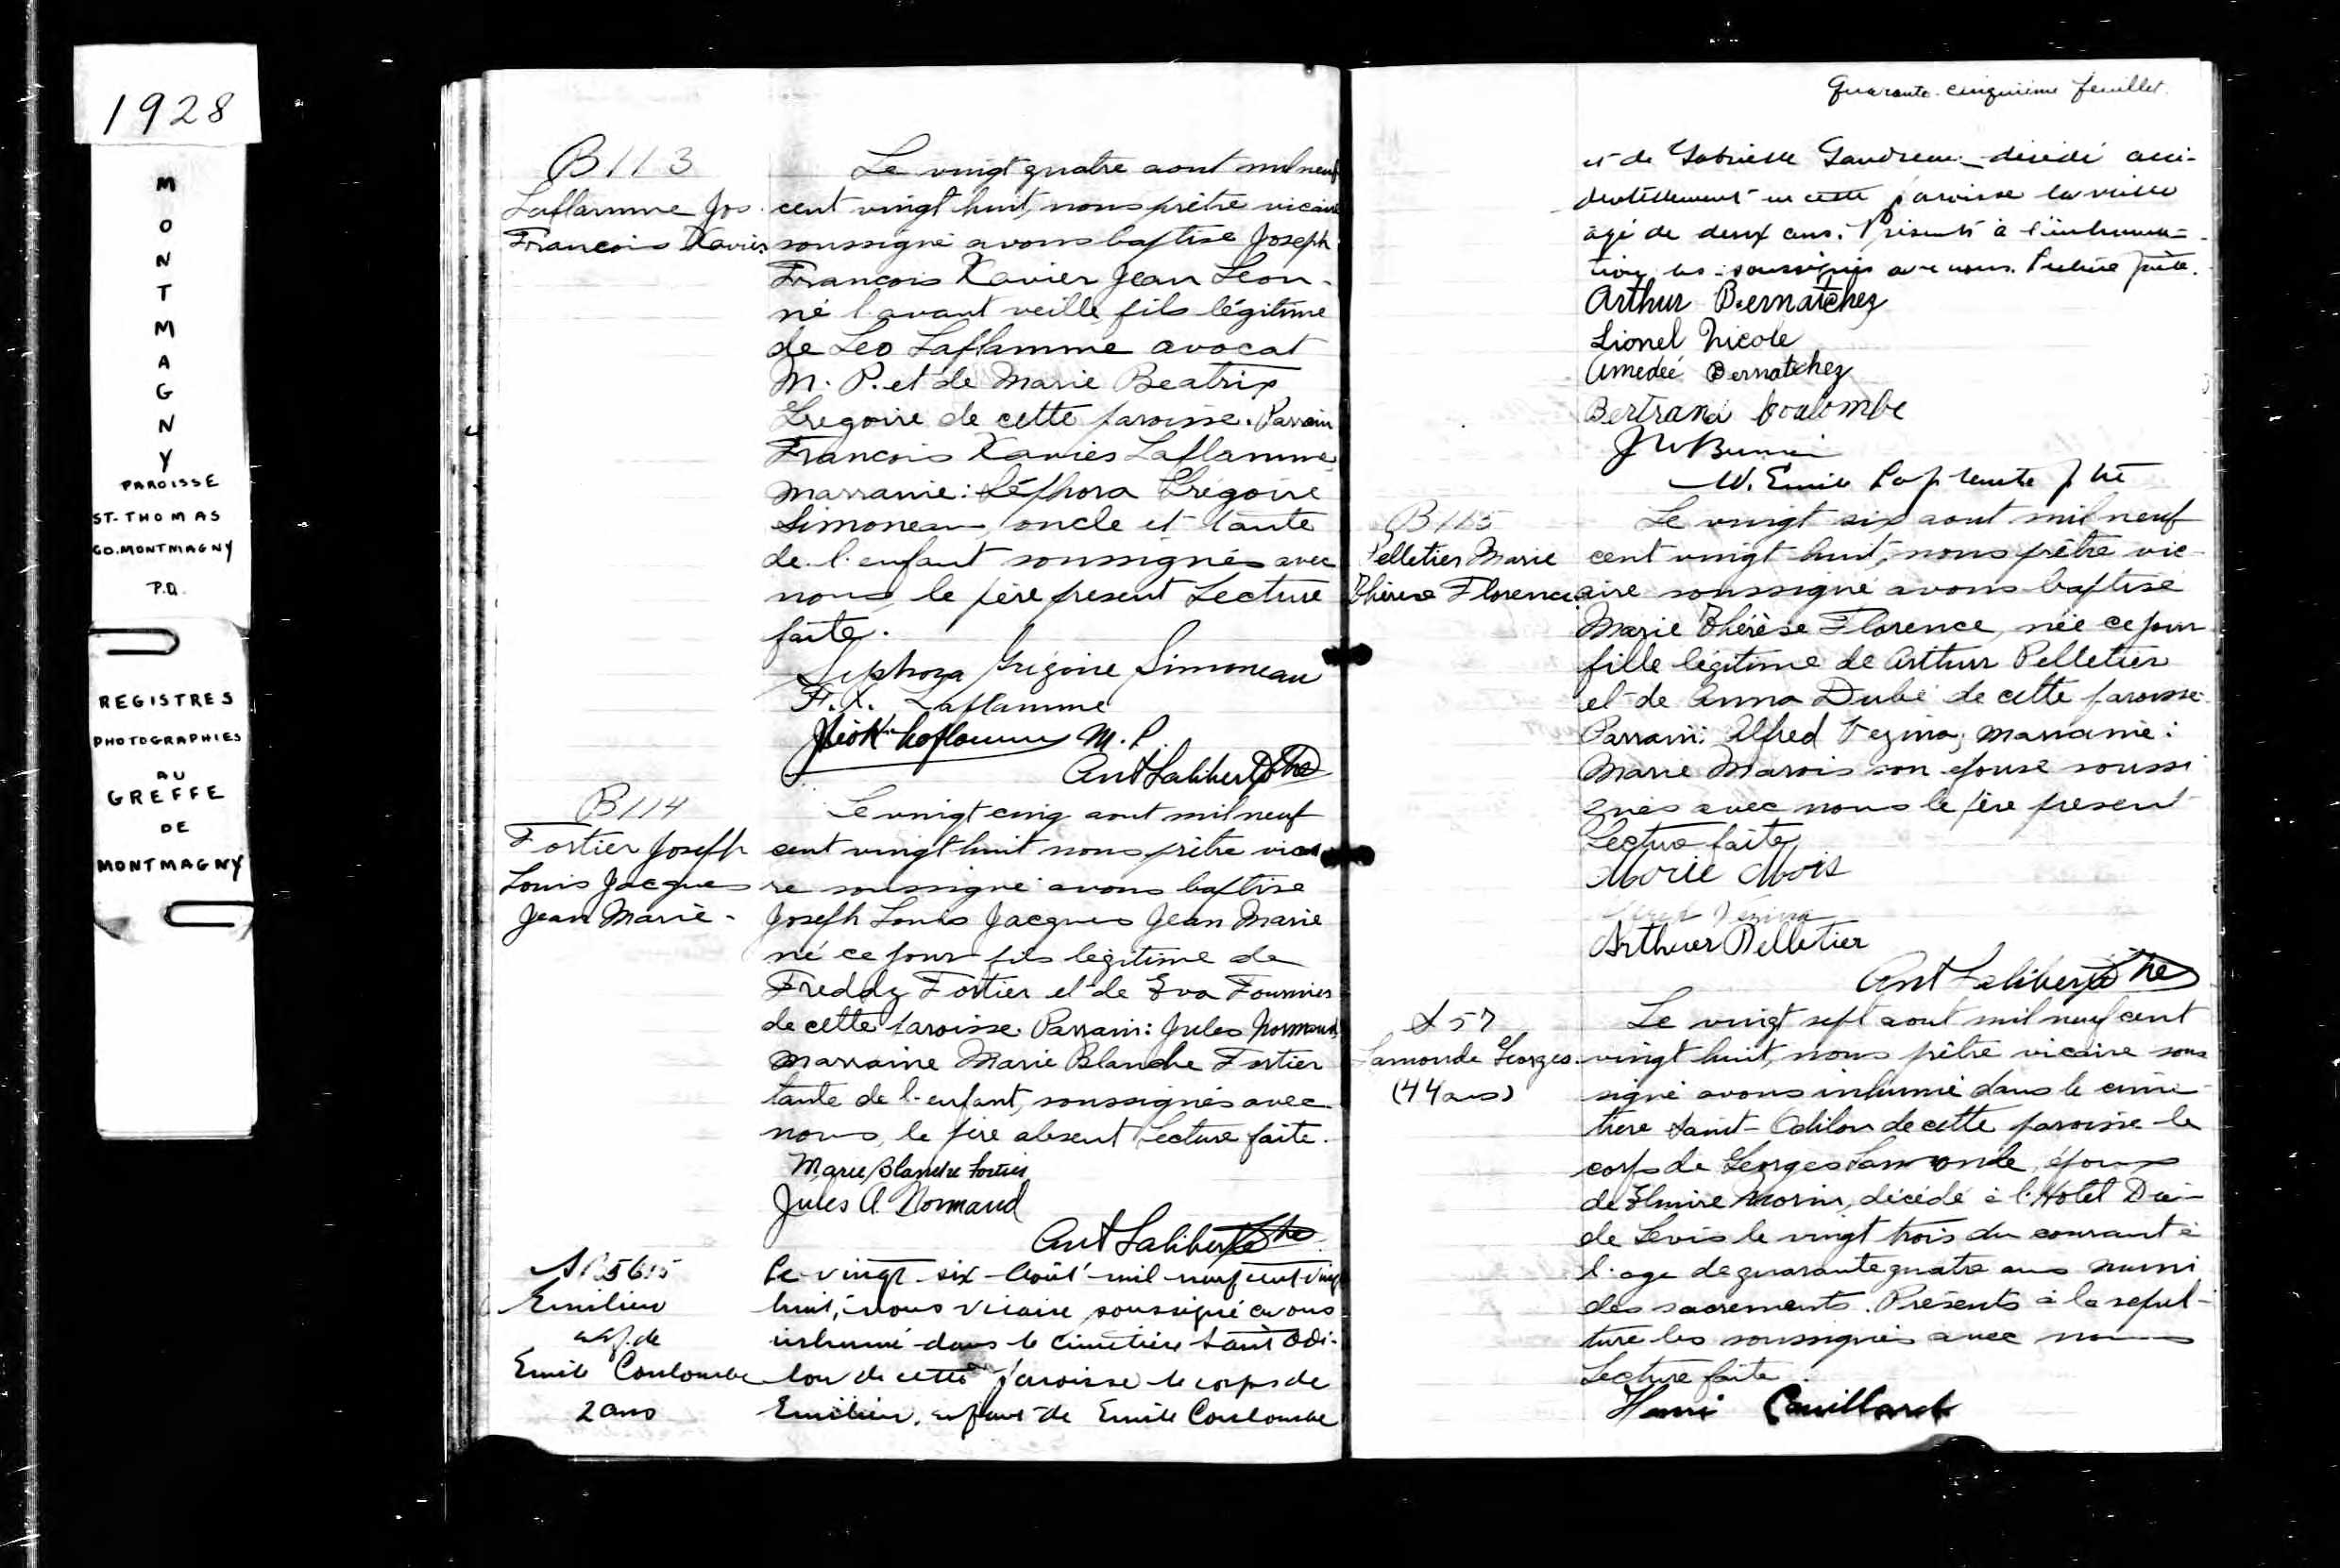 1928
MONTMAGNY
PAROISSE
ST-THOMAS
CO.MONTMAGNY
P.Q.
REGISTRES
PHOTOGRAPHIES
AU
GREFFE
DE
MONTMAGNY
B113
Laflamme Jos.
Francois Xavier.
Le vingt quatre aout mil neuf
cent vingt huit, nous prêtre vicaire
soussigné avons baptisé Joseph
Francois Xavier Jean Leon.
né l'avant veille, fils légitime
de Leo Laflamme avocat
M. P. et de Marie Beatrix
Gregoire de cette paroisse. Parrain
Francois Xavier Laflamme
marraine: Séphora Grégoire
Simoneau, oncle et tante
de l'enfant soussignés avec
nous, le père present Lecture
faite.
Séphora Grégoire Simoneau
F. X. Laflamme
Laflamme M. P.
Ant Laliberté Ptre
B114
Fortier Joseph
Louis Jacques
Jean Marie -
Le vingt cinq aout mil neuf
cent vingt huit nous prêtre vicai
re soussigné avons baptisé
Joseph Louis Jacques Jean Marie
né ce jour fils légitime de
Freddy Fortier et de Eva Fournier
de cette paroisse. Parrain: Jules Normand,
marraine Marie Blanche Fortier
tante de l'enfant, soussignés avec
nous, le père absent Lecture faite.
Marie Blanche Fortier
Jules A. Normand
Ant Laliberté Ptre
Emilien
enf. de
Emile Coulombe
2 ans
Le vingt-six Août mil neuf cent vingt
huit, nous vicaire soussigné avons
inhumé dans le cimetière Saint Odi-
lon de cette paroisse le corps de
Emilien, enfant de Emile Coulombe
Quarante-cinquième feuillet.
et de Gabrielle Gaudreau décédé acci-
dentellement en cette paroisse la veille
âgé de deux ans. Présents à l'inhuma-
tion, les soussignés avec nous. Lecture faite.
Arthur Bernatchez
Lionel Nicole
Amedée Bernatchez
Bertrand Coulombe
W. Emile Laplante ptre
B115
Pelletier Marie
Thérèse Florence.
Le vingt six aout mil neuf
cent vingt huit, nous prêtre vic-
aire soussigné avons baptisé
Marie Thérèse Florence, née ce jour
fille légitime de Arthur Pelletier
et de Anna Dubé de cette paroisse.
Parrain: Alfred Vezina, marraine:
Marie Marois son épouse soussi
gnés avec nous le père présent
Lecture faite
Arthur Pelletier
Ant Laliberté Ptre
S 57
Lamonde Georges.
(44 ans)
Le vingt sept aout mil neuf cent
vingt huit, nous prêtre vicaire sous
signé avons inhumé dans le cime
tière Saint-Odilon de cette paroisse le
corps de Georges Lamonde, époux
de Elmire Morin, décédé à l'Hotel Dieu
de Levis le vingt trois du courant à
l'age de quarante quatre ans muni
des sacrements. Présents à la sépul-
ture les soussignés avec nous
Lecture faite.
Henri Couillard